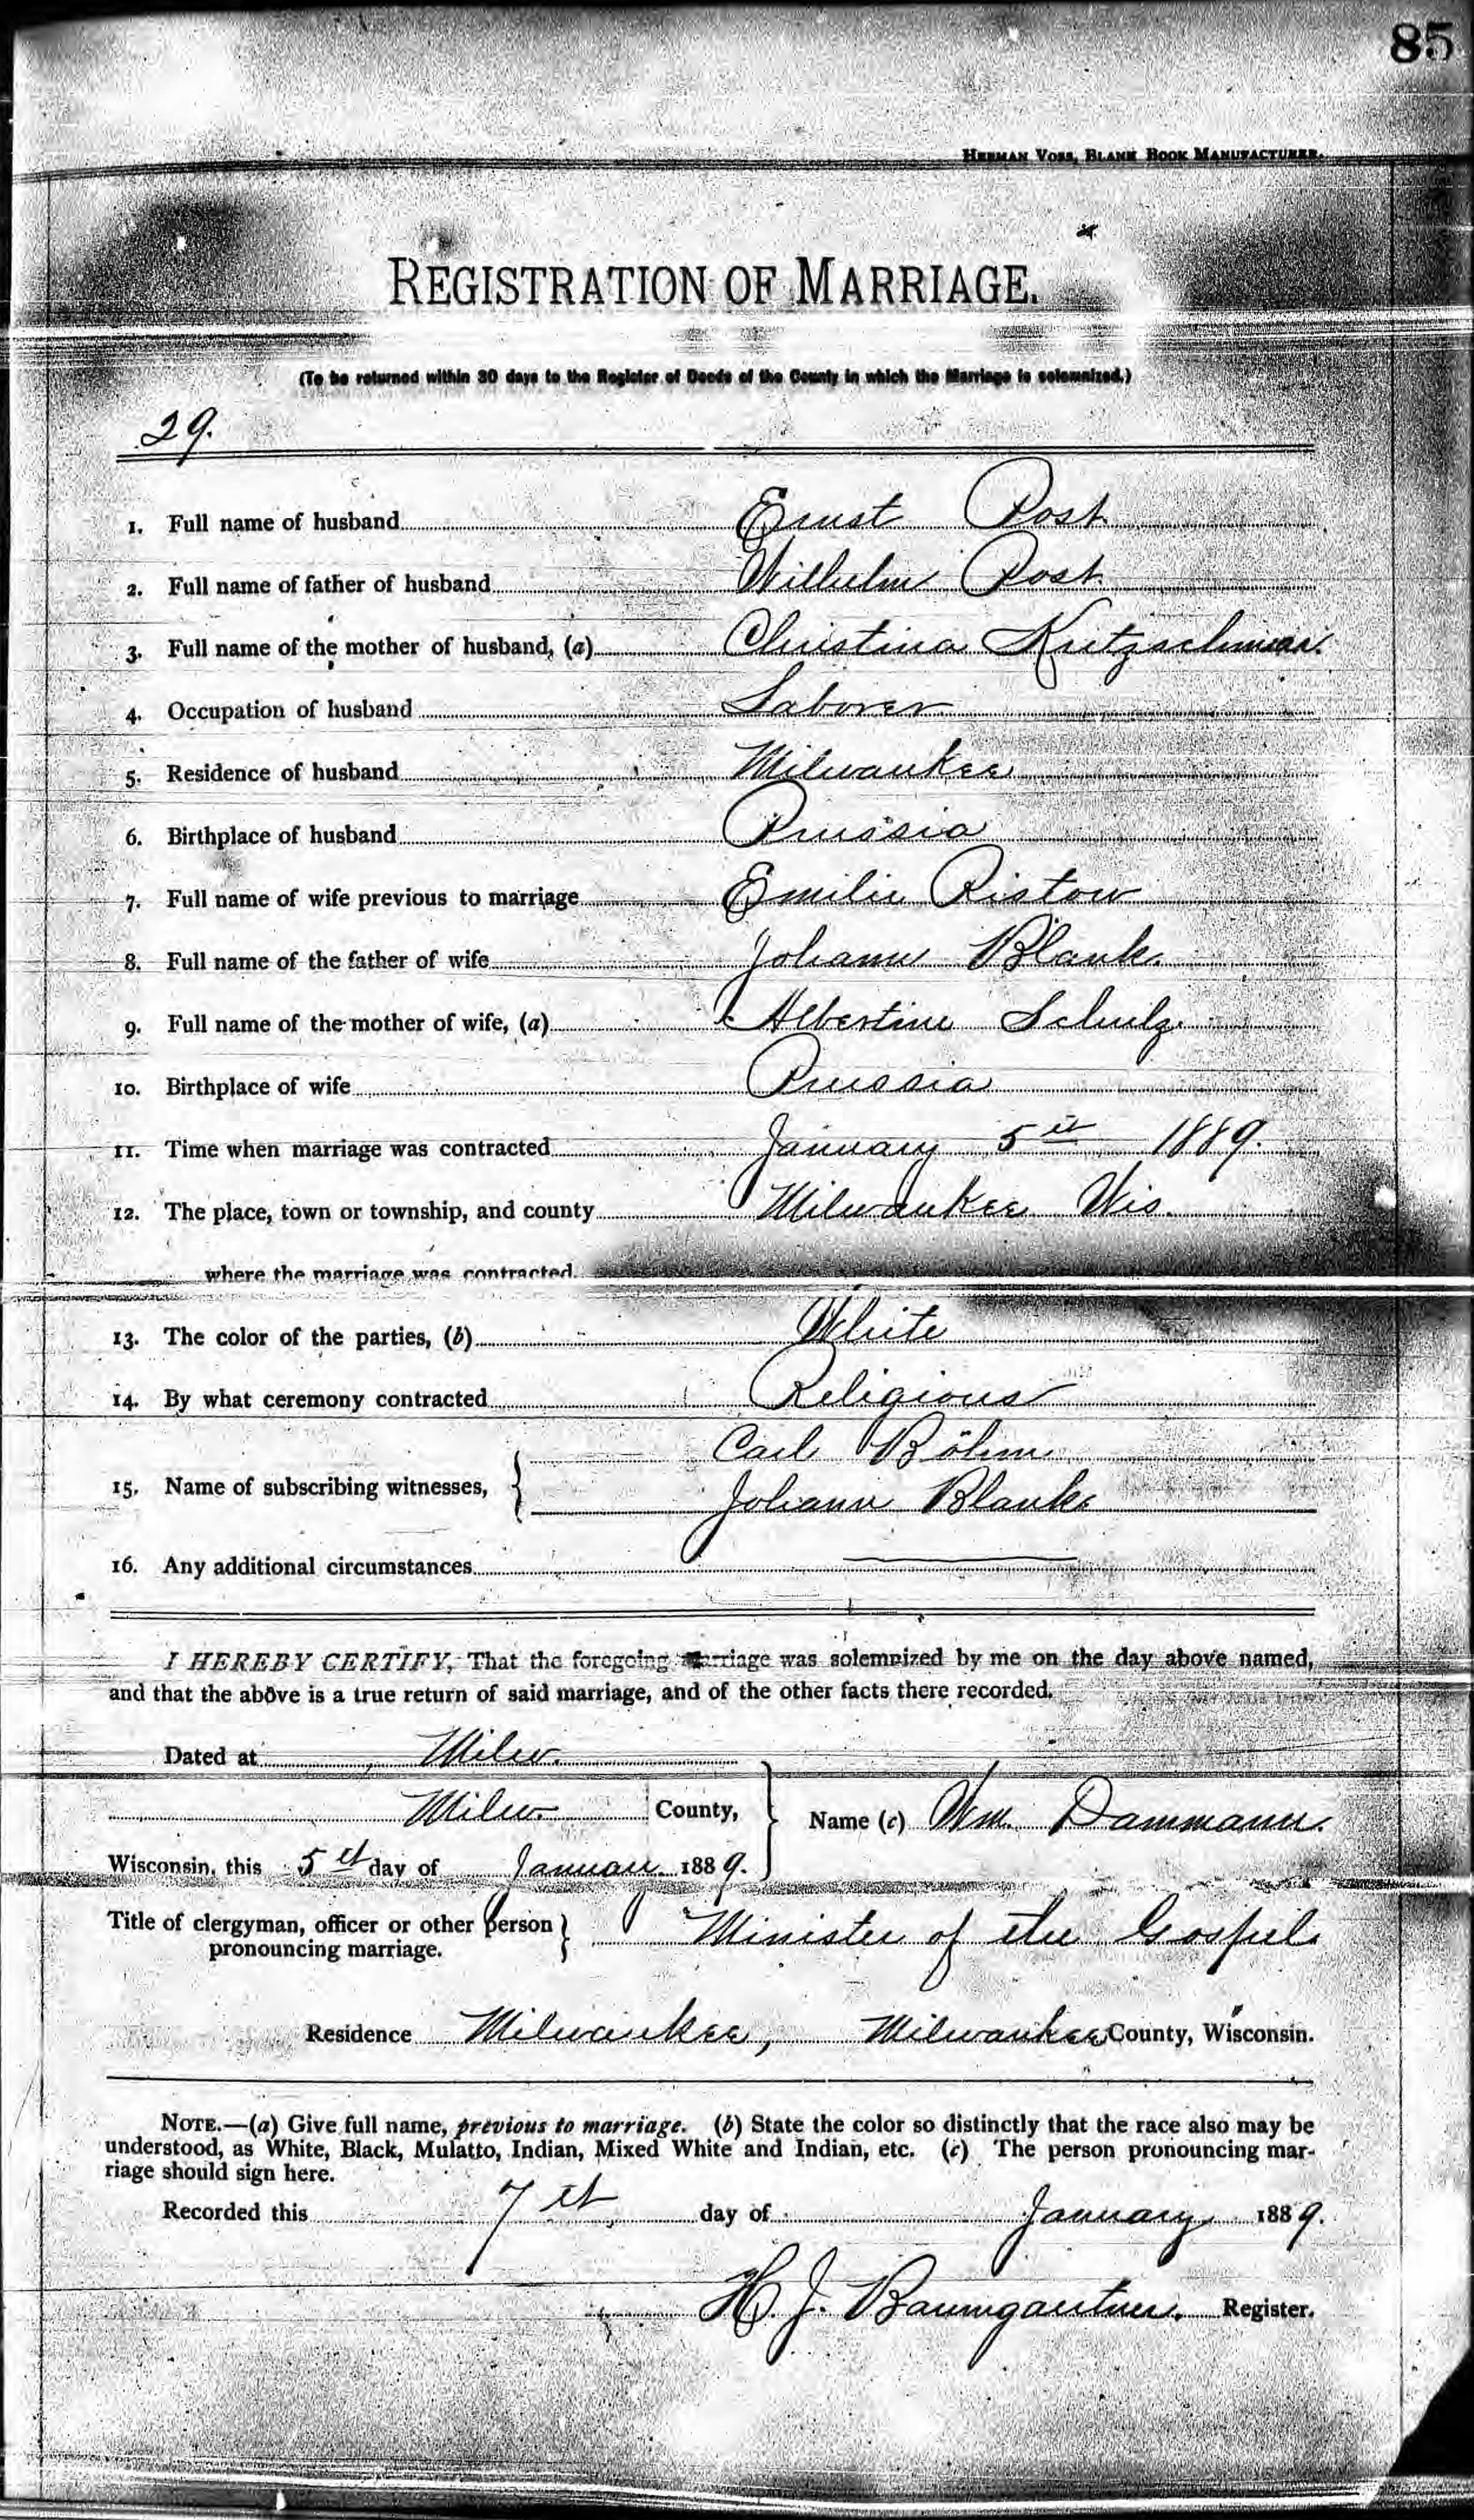 85
HERMAN VOSS, BLANK BOOK MANUFACTURER.
REGISTRATION OF MARRIAGE.
(To be returned within 30 days to the Register of Deeds of the County in which the Marriage is solemnized.)
29.
1. Full name of husband Ernst Post
2. Full name of father of husband Wilhelm Post
3. Full name of the mother of husband, (a) Christina
4. Occupation of husband Laborer
5. Residence of husband Milwaukee
6. Birthplace of husband Prussia
7. Full name of wife previous to marriage Emilie Ristow
8. Full name of the father of wife Johann Blank
9. Full name of the mother of wife, (a) Albertine Schulz
10. Birthplace of wife Prussia
11. Time when marriage was contracted January 5th 1889.
12. The place, town or township, and county Milwaukee Wis.
where the marriage was contracted
13. The color of the parties, (b) White
14. By what ceremony contracted Religious
Carl Böhm
15. Name of subscribing witnesses, } Johann Blank
16. Any additional circumstances
I HEREBY CERTIFY, That the foregoing marriage was solemnized by me on the day above named,
and that the above is a true return of said marriage, and of the other facts there recorded.
Dated at Milw.
Milw County, Name (c) Wm. Dammann.
Wisconsin, this 5th day of January 1889.
Title of clergyman, officer or other person } Minister of the Gospel
pronouncing marriage.
Residence Milwaukee, Milwaukee County, Wisconsin.
NOTE.—(a) Give full name, previous to marriage. (b) State the color so distinctly that the race also may be
understood, as White, Black, Mulatto, Indian, Mixed White and Indian, etc. (c) The person pronouncing mar-
riage should sign here.
Recorded this 7th day of January 1889.
H. J. Baumgartner. Register.